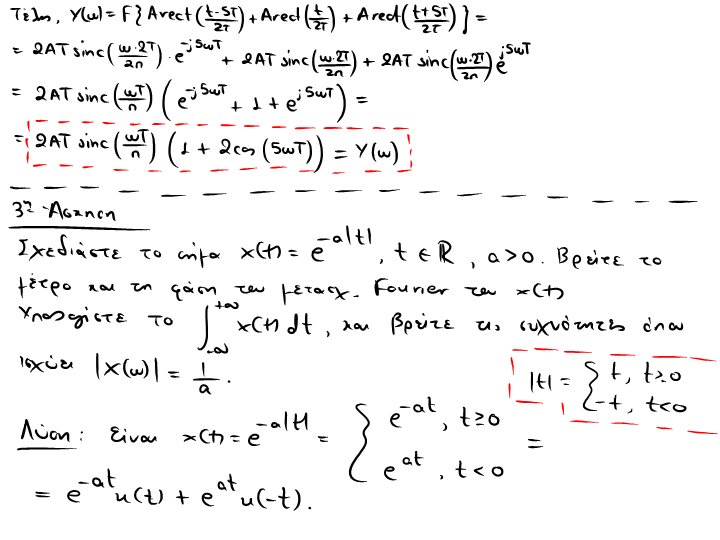 Τέλος, Y(ω) = F{ A rect((t-5T)/2T) + A rect(t/2T) + A rect((t+5T)/2T) } =
= 2AT sinc(ω·2T/2π) · e^{-j5ωT} + 2AT sinc(ω·2T/2π) + 2AT sinc(ω·2T/2π) e^{j5ωT}
= 2AT sinc(ωT/π) ( e^{-j5ωT} + 1 + e^{j5ωT} ) =
= 2AT sinc(ωT/π) (1 + 2cos(5ωT)) = Y(ω)
3η Άσκηση
Σχεδιάστε το σήμα x(t) = e^{-a|t|}, t ∈ ℝ, a>0. Βρείτε το
μέτρο και τη φάση του μετασχ. Fourier του x(t)
Υπολογίστε το ∫_{-∞}^{+∞} x(t) dt, και βρείτε τις συχνότητες όπου
ισχύει |X(ω)| = 1/a.
|t| = { t, t≥0
-t, t<0
Λύση: Είναι x(t) = e^{-a|t|} = { e^{-at}, t≥0
e^{at}, t<0 =
= e^{-at}u(t) + e^{at}u(-t).